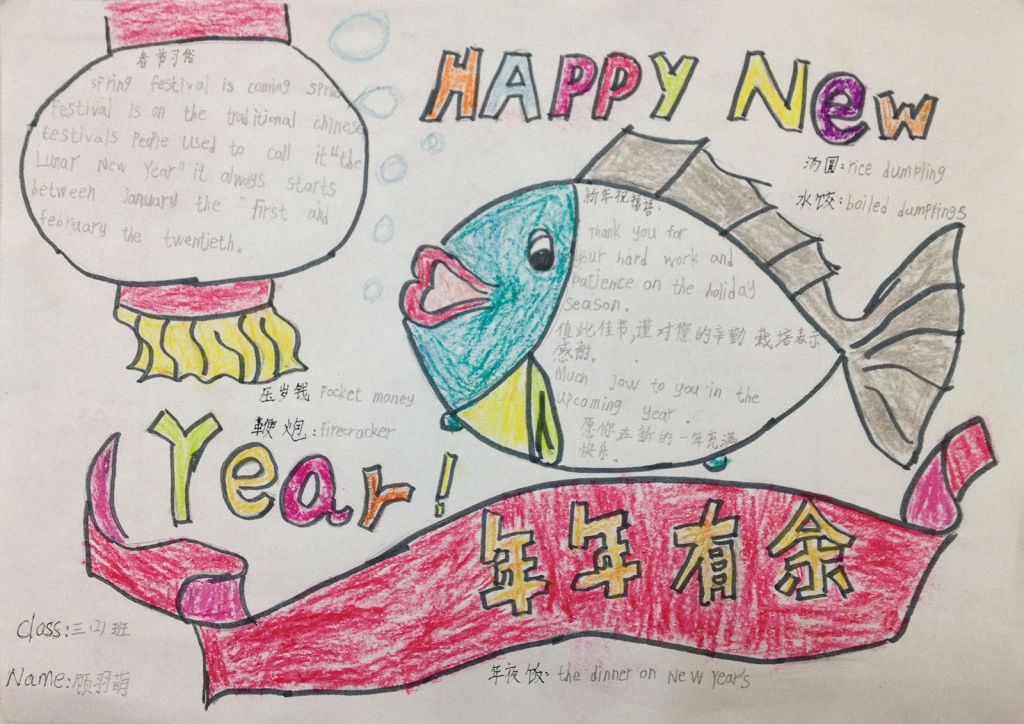 春节习俗
spring festival is coming spri
Festival is on the traditional chinese
festivals People used to call it "the
Lunar New Year" it always starts
between january the first and
february the twentieth.
HAPPY New
汤圆:rice dumpling
水饺:boiled dumplings
新年祝福语:
Thank you for
your hard work and
patience on the holiday
season.
值此佳节,谨对您的辛勤栽培表示
感谢。
Much jow to you in the
upcoming year.
愿你在新的一年充满
快乐。
压岁钱 Pocket money
鞭炮:firecracker
Year!
年年有余
Class:三(2)班
Name:顾羽萌
年夜饭:the dinner on New Year's